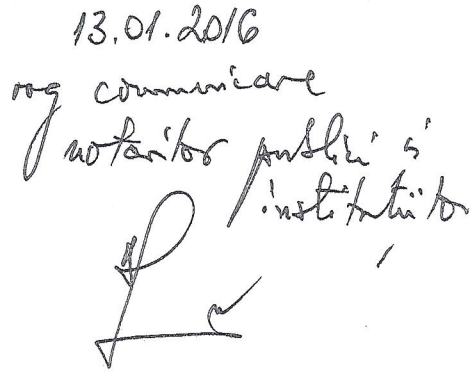 13.01.2016
rog comunicare
notarilor publici si
institutiilor